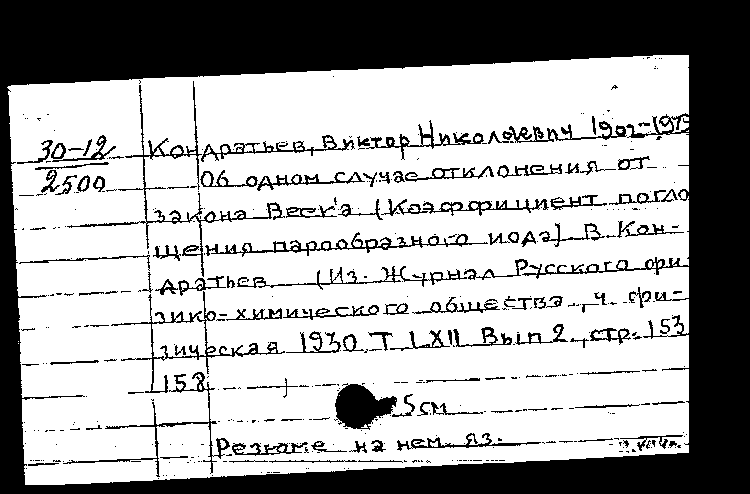 30-12
2500
Кондратьев, Виктор Николаевич 1902-1979
Об одном случае отклонения от
закона Beer'a. (Коэффициент погло
щения парообразного иода). В. Кон-
дратьев. (Из. Журнал Русского фи
зико-химического общества, ч. физи-
ческая 1930. Т LXII Вып 2., стр. 153
158
5 см
Резюме на нем. яз.